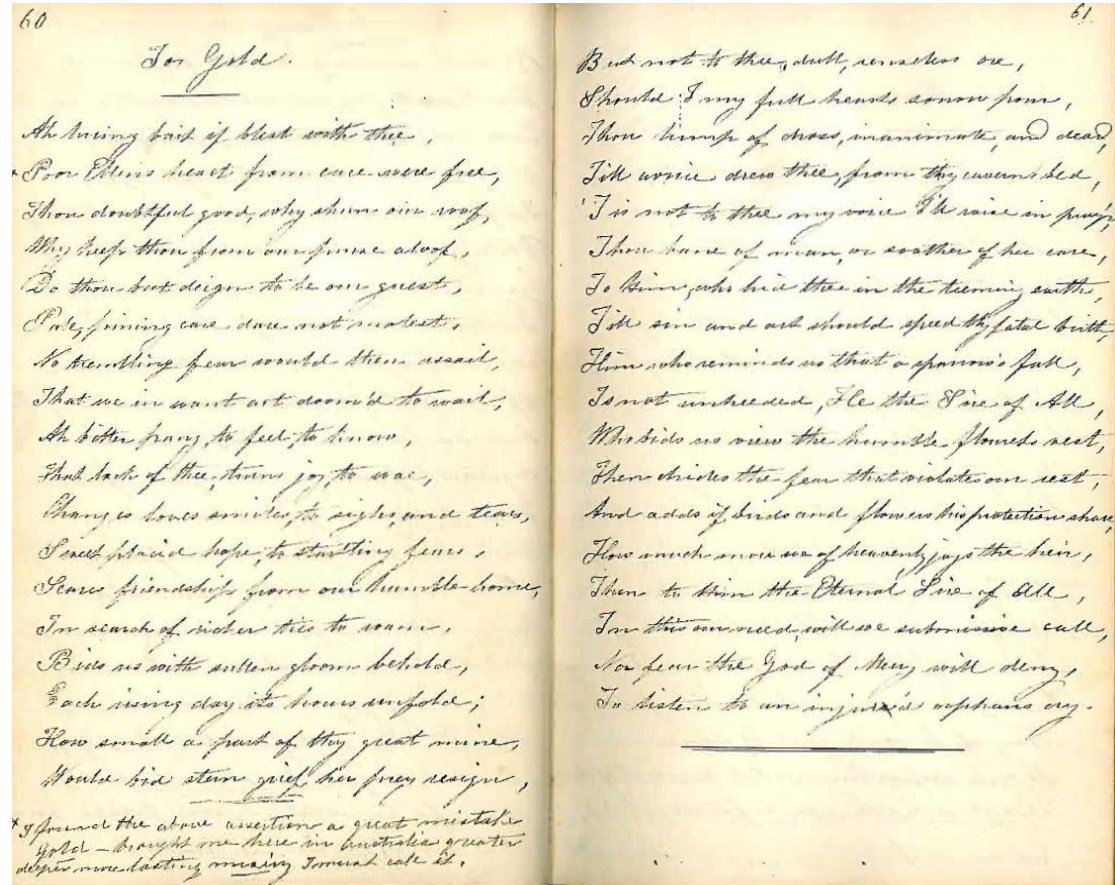 60
For Gold.
Ah luring bait if blest with thee,
+ Poor Ellens heart from care were free,
Thou doubtful good, why shun our roof,
Why keep thou from our purse aloof,
Do thou but deign to be our guest,
Pale, pining care dare not molest,
No trembling fear would then assail,
That we in want art doom'd to wail,
Ah bitter pang, to feel, to know,
That lack of thee, turns joy, to woe,
Changes loves smiles, to sighs, and tears,
Sweet placid hope, to startling fears,
Scares friendship from our humble home,
In search of richer ties to roam,
Bids us with sullen gloom behold,
Each rising day its hours unfold;
How small a part of thy great mine,
Would bid stern grief her prey resign,
+ I found the above assertion a great mistake
Gold – brought me here in Australia greater
deeper more lasting misery I must call it.
61
But not to thee, dull, senseless ore,
Should I my full hearts sorrow pour,
Thou lump of dross, inanimate, and dead,
Till avarice drew thee, from thy cavern bed,
'Tis not to thee my voice I'll raise in pray'r,
Thou bane of man, or soother of his care,
To Him, who hid thee in the teeming earth,
Till sin and art should speed thy fatal birth,
Him who reminds us that a sparrow's fall,
Is not unheeded, He the Sire of All,
Who bids us view the humble flowrets vest,
Then chides the fear that violate our rest,
And adds if birds and flowers his protection share,
How much more we of heavenly joys the heir,
Then to Him the Eternal Sire of All,
In this our need, will we submissive call,
Nor fear the God of Mercy will deny,
To listen to an injured orphans cry.